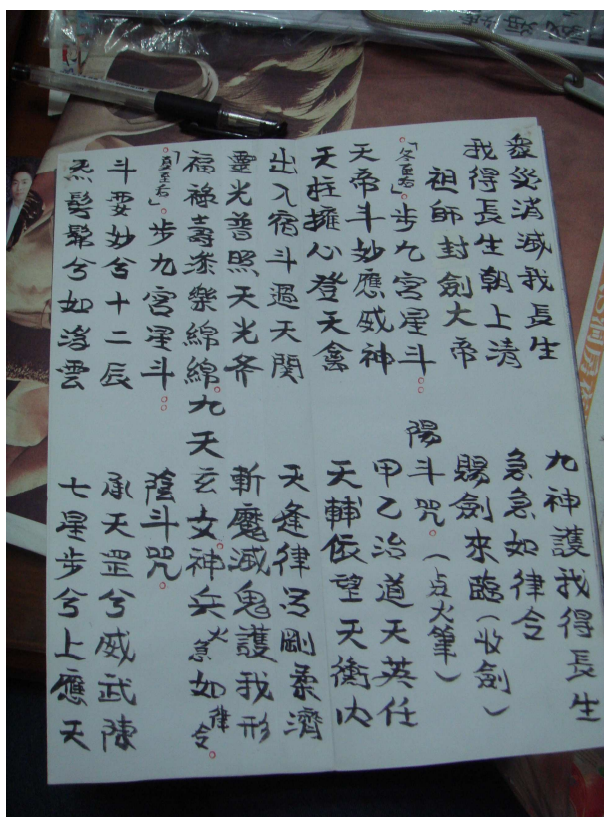 災消滅我長生 九神護我得長生
我得長生朝上清 急急如律令
祖師封劍大帝 賜劍來臨(收劍)
。「冬至后」步九宮星斗。。 陽斗咒。(点火筆)
天帝斗妙應威神 甲乙治道天英任
天柱擁心登天禽 天輔依望天衝内
出入宿斗過天関 天逢律呂剛柔濟
靈光普照天光齐 斬魔滅鬼護我形
福祿壽添樂綿綿。九天玄女神兵火急如律令。
。「夏至后」步九宮星斗。。 陰斗咒。
斗要妙兮十二辰 承天罡兮威武陳
炁髣髴兮如浮雲 七星步兮上應天